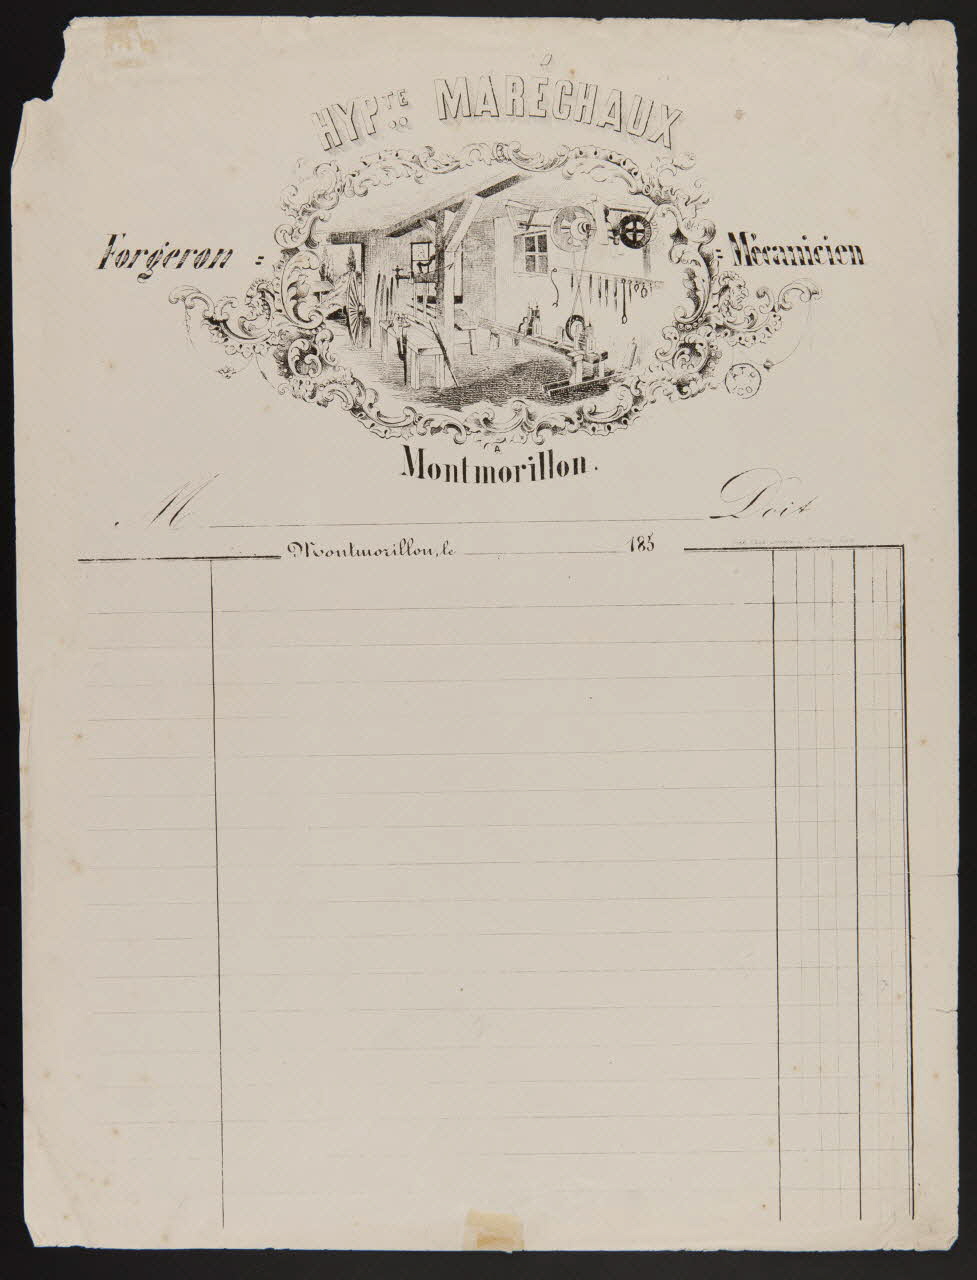 HYPTE MARÉCHAUX
Forgeron = = Mécanicien
A
Montmorillon.
M Doit
Montmorillon, le 185